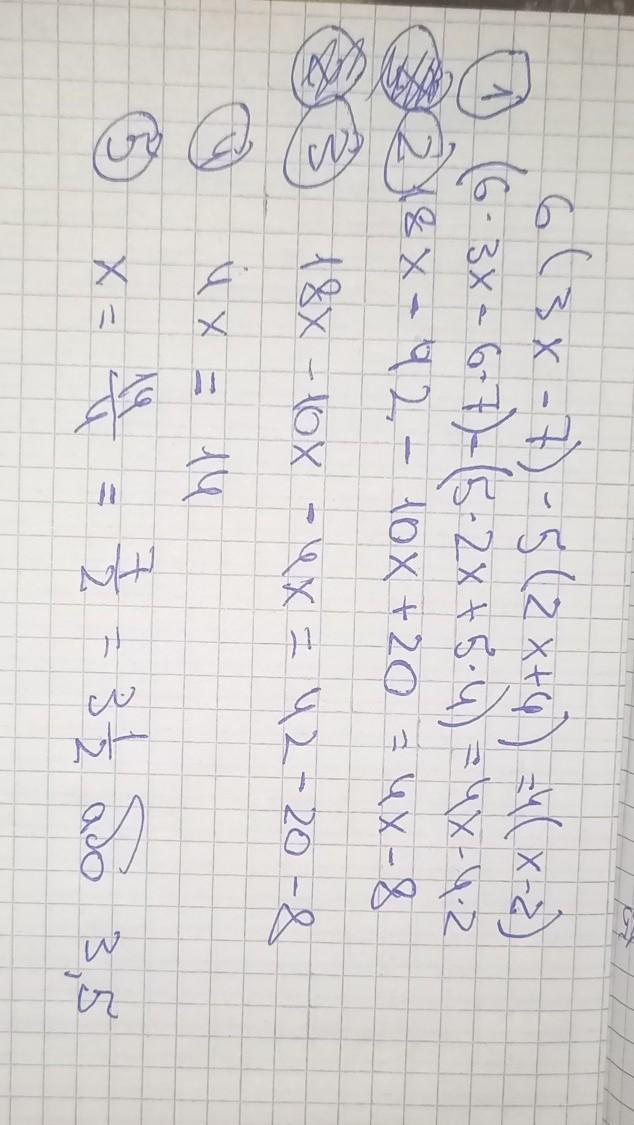 6(3x-7)-5(2x+4)=4(x-2)
1 (6·3x-6·7)-(5·2x+5·4)=4x-4·2
2 18x-42-10x+20=4x-8
3 18x-10x-4x=42-20-8
4 4x=14
5 x=14/4=7/2=3 1/2 або 3,5